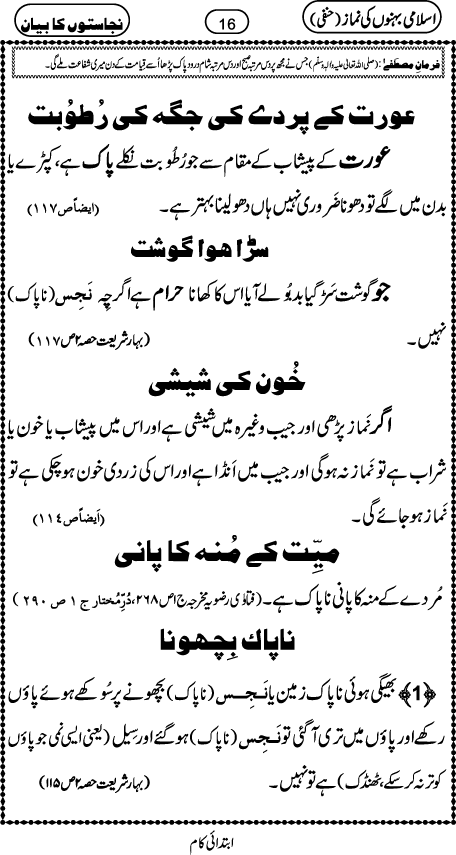 اسلامی بہنوں کی نماز (حنفی)
16
نجاستوں کا بیان
فرمانِ مصطفےٰ: (صلی اللہ تعالیٰ علیہ والہٖ وسلّم) جس نے مجھ پر دس مرتبہ صبح اور دس مرتبہ شام درود پاک پڑھا اُسے قیامت کے دن میری شفاعت ملے گی۔
عورت کے پردے کی جگہ کی رُطُوبت
عورت کے پیشاب کے مقام سے جو رُطُوبت نکلے پاک ہے، کپڑے یا
بدن میں لگے تو دھونا ضَروری نہیں ہاں دھولینا بہتر ہے۔ (ایضاً ص ۱۱۷)
سڑا ہوا گوشت
جو گوشت سَڑ گیا بدبُو لے آیا اس کا کھانا حرام ہے اگرچِہ نَجِس (ناپاک)
نہیں۔ (بہارِ شریعت حصہ ۲ ص ۱۱۷)
خُون کی شیشی
اگر نَماز پڑھی اور جیب وغیرہ میں شیشی ہے اور اس میں پیشاب یا خون یا
شراب ہے تو نَماز نہ ہوگی اور جیب میں اَنڈا ہے اور اس کی زردی خون ہو چکی ہے تو
نَماز ہو جائے گی۔ (اَیضاً ص ۱۱۴)
میِّت کے مُنہ کا پانی
مُردے کے منہ کا پانی ناپاک ہے۔ (فتاوٰی رضویہ مخرجہ ج ۱ ص ۲۶۸، دُرِّمُختار ج ۱ ص ۲۹۰)
ناپاک بِچھونا
﴿1﴾ بھیگی ہوئی ناپاک زمین یا نَجِس (ناپاک) بچھونے پر سُوکھے ہوئے پاؤں
رکھے اور پاؤں میں تری آگئی تو نَجِس (ناپاک) ہوگئے اور سِیل (یعنی ایسی نمی جو پاؤں
کو تر نہ کر سکے، ٹھنڈک) ہے تو نہیں۔ (بہارِ شریعت حصہ ۲ ص ۱۱۵)
ابتدائی کام